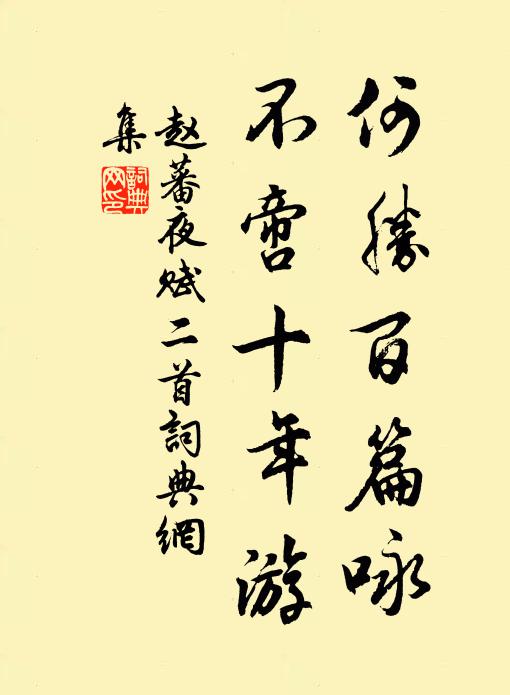 何勝百篇咏
不啻十年游
赵蕃夜赋二首詞典網
集
詞典网印